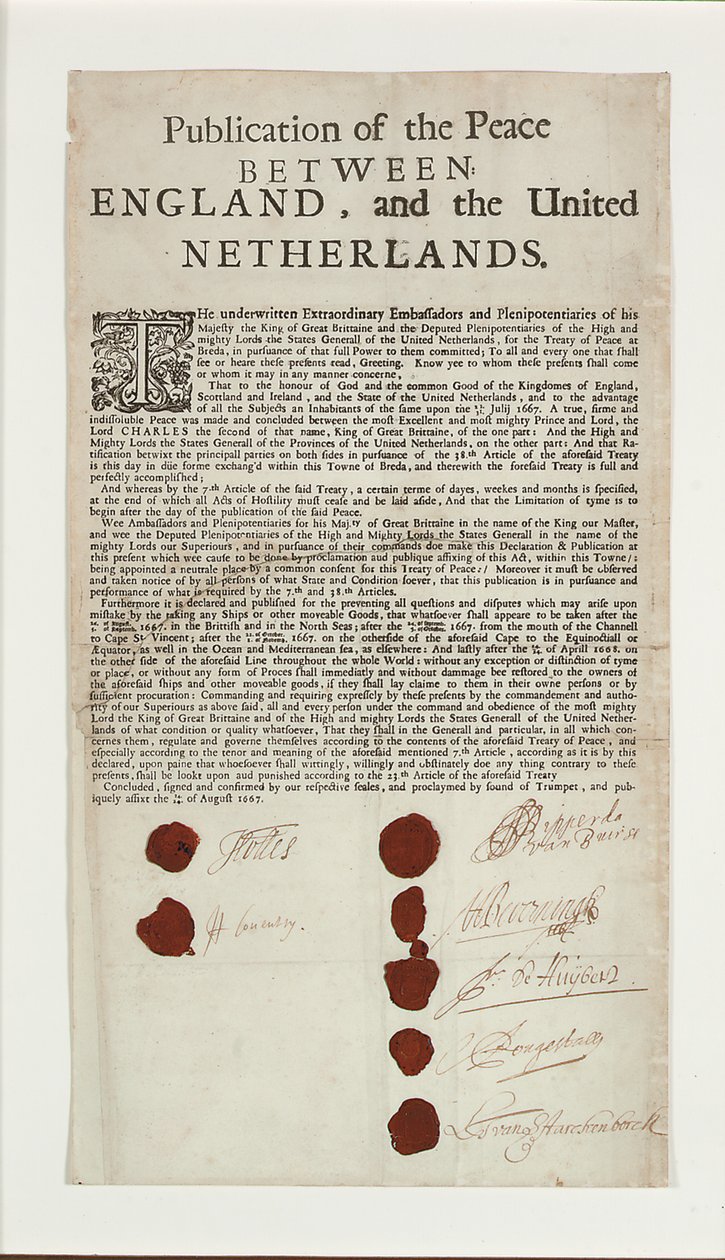 Publication of the Peace
BETWEEN:
ENGLAND, and the United
NETHERLANDS.
THe underwritten Extraordinary Embaſſadors and Plenipotentiaries of his
Majeſty the King of Great Brittaine and the Deputed Plenipotentiaries of the High and
mighty Lords the States Generall of the United Netherlands, for the Treaty of Peace at
Breda, in purſuance of that full Power to them committed; To all and every one that ſhall
ſee or heare theſe preſents read, Greeting. Know yee to whom theſe preſents ſhall come
or whom it may in any manner concerne,
That to the honour of God and the common Good of the Kingdomes of England,
Scottland and Ireland, and the State of the United Netherlands, and to the advantage
of all the Subjects an Inhabitants of the ſame upon the Julij 1667. A true, firme and
indiſſoluble Peace was made and concluded between the moſt Excellent and moſt mighty Prince and Lord, the
Lord CHARLES the ſecond of that name, King of Great Brittaine, of the one part: And the High and
Mighty Lords the States Generall of the Provinces of the United Netherlands, on the other part: And that Ra-
tification betwixt the principall parties on both ſides in purſuance of the 38.th Article of the aforeſaid Treaty
is this day in düe forme exchang'd within this Towne of Breda, and therewith the foreſaid Treaty is full and
perfectly accompliſhed;
And whereas by the 7.th Article of the ſaid Treaty, a certain terme of dayes, weekes and months is ſpecified,
at the end of which all Acts of Hoſtility muſt ceaſe and be laid aſide, And that the Limitation of tyme is to
begin after the day of the publication of the ſaid Peace.
Wee Ambaſſadors and Plenipotentiaries for his Maj.ty of Great Brittaine in the name of the King our Maſter,
and wee the Deputed Plenipotentiaries of the High and Mighty Lords the States Generall in the name of the
mighty Lords our Superiours, and in purſuance of their commands doe make this Declaration & Publication at
this preſent which wee cauſe to be done by proclamation aud publique affixing of this Act, within this Towne/:
being appointed a neutrale place by a common conſent for this Treaty of Peace:/ Moreover it muſt be obſerved
and taken notice of by all perſons of what State and Condition ſoever, that this publication is in purſuance and
performance of what is required by the 7.th and 38.th Articles.
Furthermore it is declared and publiſhed for the preventing all queſtions and diſputes which may ariſe upon
miſtake by the taking any Ships or other moveable Goods, that whatſoever ſhall appeare to be taken after the
1667. in the Brittiſh and in the North Seas; after the 1667. from the mouth of the Channell
to Cape St Vincent; after the 1667. on the otherſide of the aforeſaid Cape to the Equinoctiall or
Æquator, as well in the Ocean and Mediterranean ſea, as elſewhere: And laſtly after the of Aprill 1668. on
the other ſide of the aforeſaid Line throughout the whole World: without any exception or diſtinction of tyme
or place, or without any form of Proces ſhall immediatly and without dammage bee reſtored to the owners of
the aforeſaid ſhips and other moveable goods, if they ſhall lay claime to them in their owne perſons or by
ſufficient procuration: Commanding and requiring expreſſely by theſe preſents by the commandement and autho-
rity of our Superiours as above ſaid, all and every perſon under the command and obedience of the moſt mighty
Lord the King of Great Brittaine and of the High and mighty Lords the States Generall of the United Nether-
lands of what condition or quality whatſoever, That they ſhall in the Generall and particular, in all which con-
cernes them, regulate and governe themſelves according to the contents of the aforeſaid Treaty of Peace, and
eſpecially according to the tenor and meaning of the aforeſaid mentioned 7.th Article, according as it is by this
declared, upon paine that whoeſoever ſhall wittingly, willingly and obſtinately doe any thing contrary to theſe
preſents, ſhall be lookt upon aud punished according to the 23.th Article of the aforeſaid Treaty
Concluded, ſigned and confirmed by our reſpective ſeales, and proclaymed by ſound of Trumpet, and pub-
iquely affixt the of Auguſt 1667.
Holles
Ripperda
van Buirse
H Coventry.
HBeverningk
De Huijbert
Jongestall
van Starckenborck